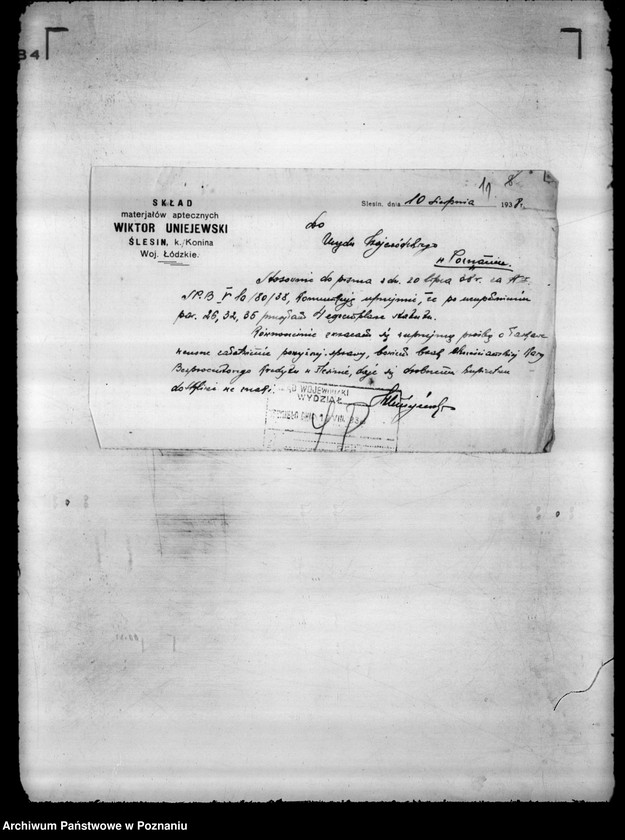 84
11 8
SKŁAD
materjałów aptecznych
WIKTOR UNIEJEWSKI
ŚLESIN, k./Konina
Woj. Łódzkie.
Slesin, dnia 10 sierpnia 1938 r.
Do
Urzędu Wojewódzkiego
w Poznaniu.
Stosownie do pisma z dn. 20 lipca 38 r. za
komunikuję uprzejmie, że po uzupełnieniu
par. 26, 32, 36 przesyłam 4 egzemplarze statutu.
Równocześnie zwracam się z uprzejmą prośbą o
załatwienie sprawy, bowiem brak Chrześcijańskiej Kasy
Bezprocentowego Kredytu w Ślesinie, daje się drobnemu kupiectwu
we znaki.
URZĄD WOJEWÓDZKI
WYDZIAŁ
Archiwum Państwowe w Poznaniu